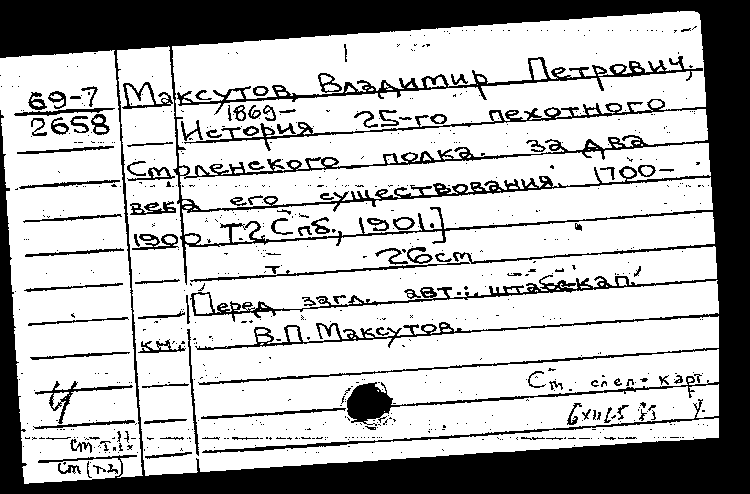 69-7
2658
Максутов, Владимир Петрович,
1869-
[История 25-го пехотного
Смоленского полка. за два
века его существования. 1700-
1900. Т.2, Спб., 1901.]
т. 26 см
Перед загл. авт.: штабс-кап.
В.П. Максутов.
кн.
См. след. карт.
Ч
См (т.2)